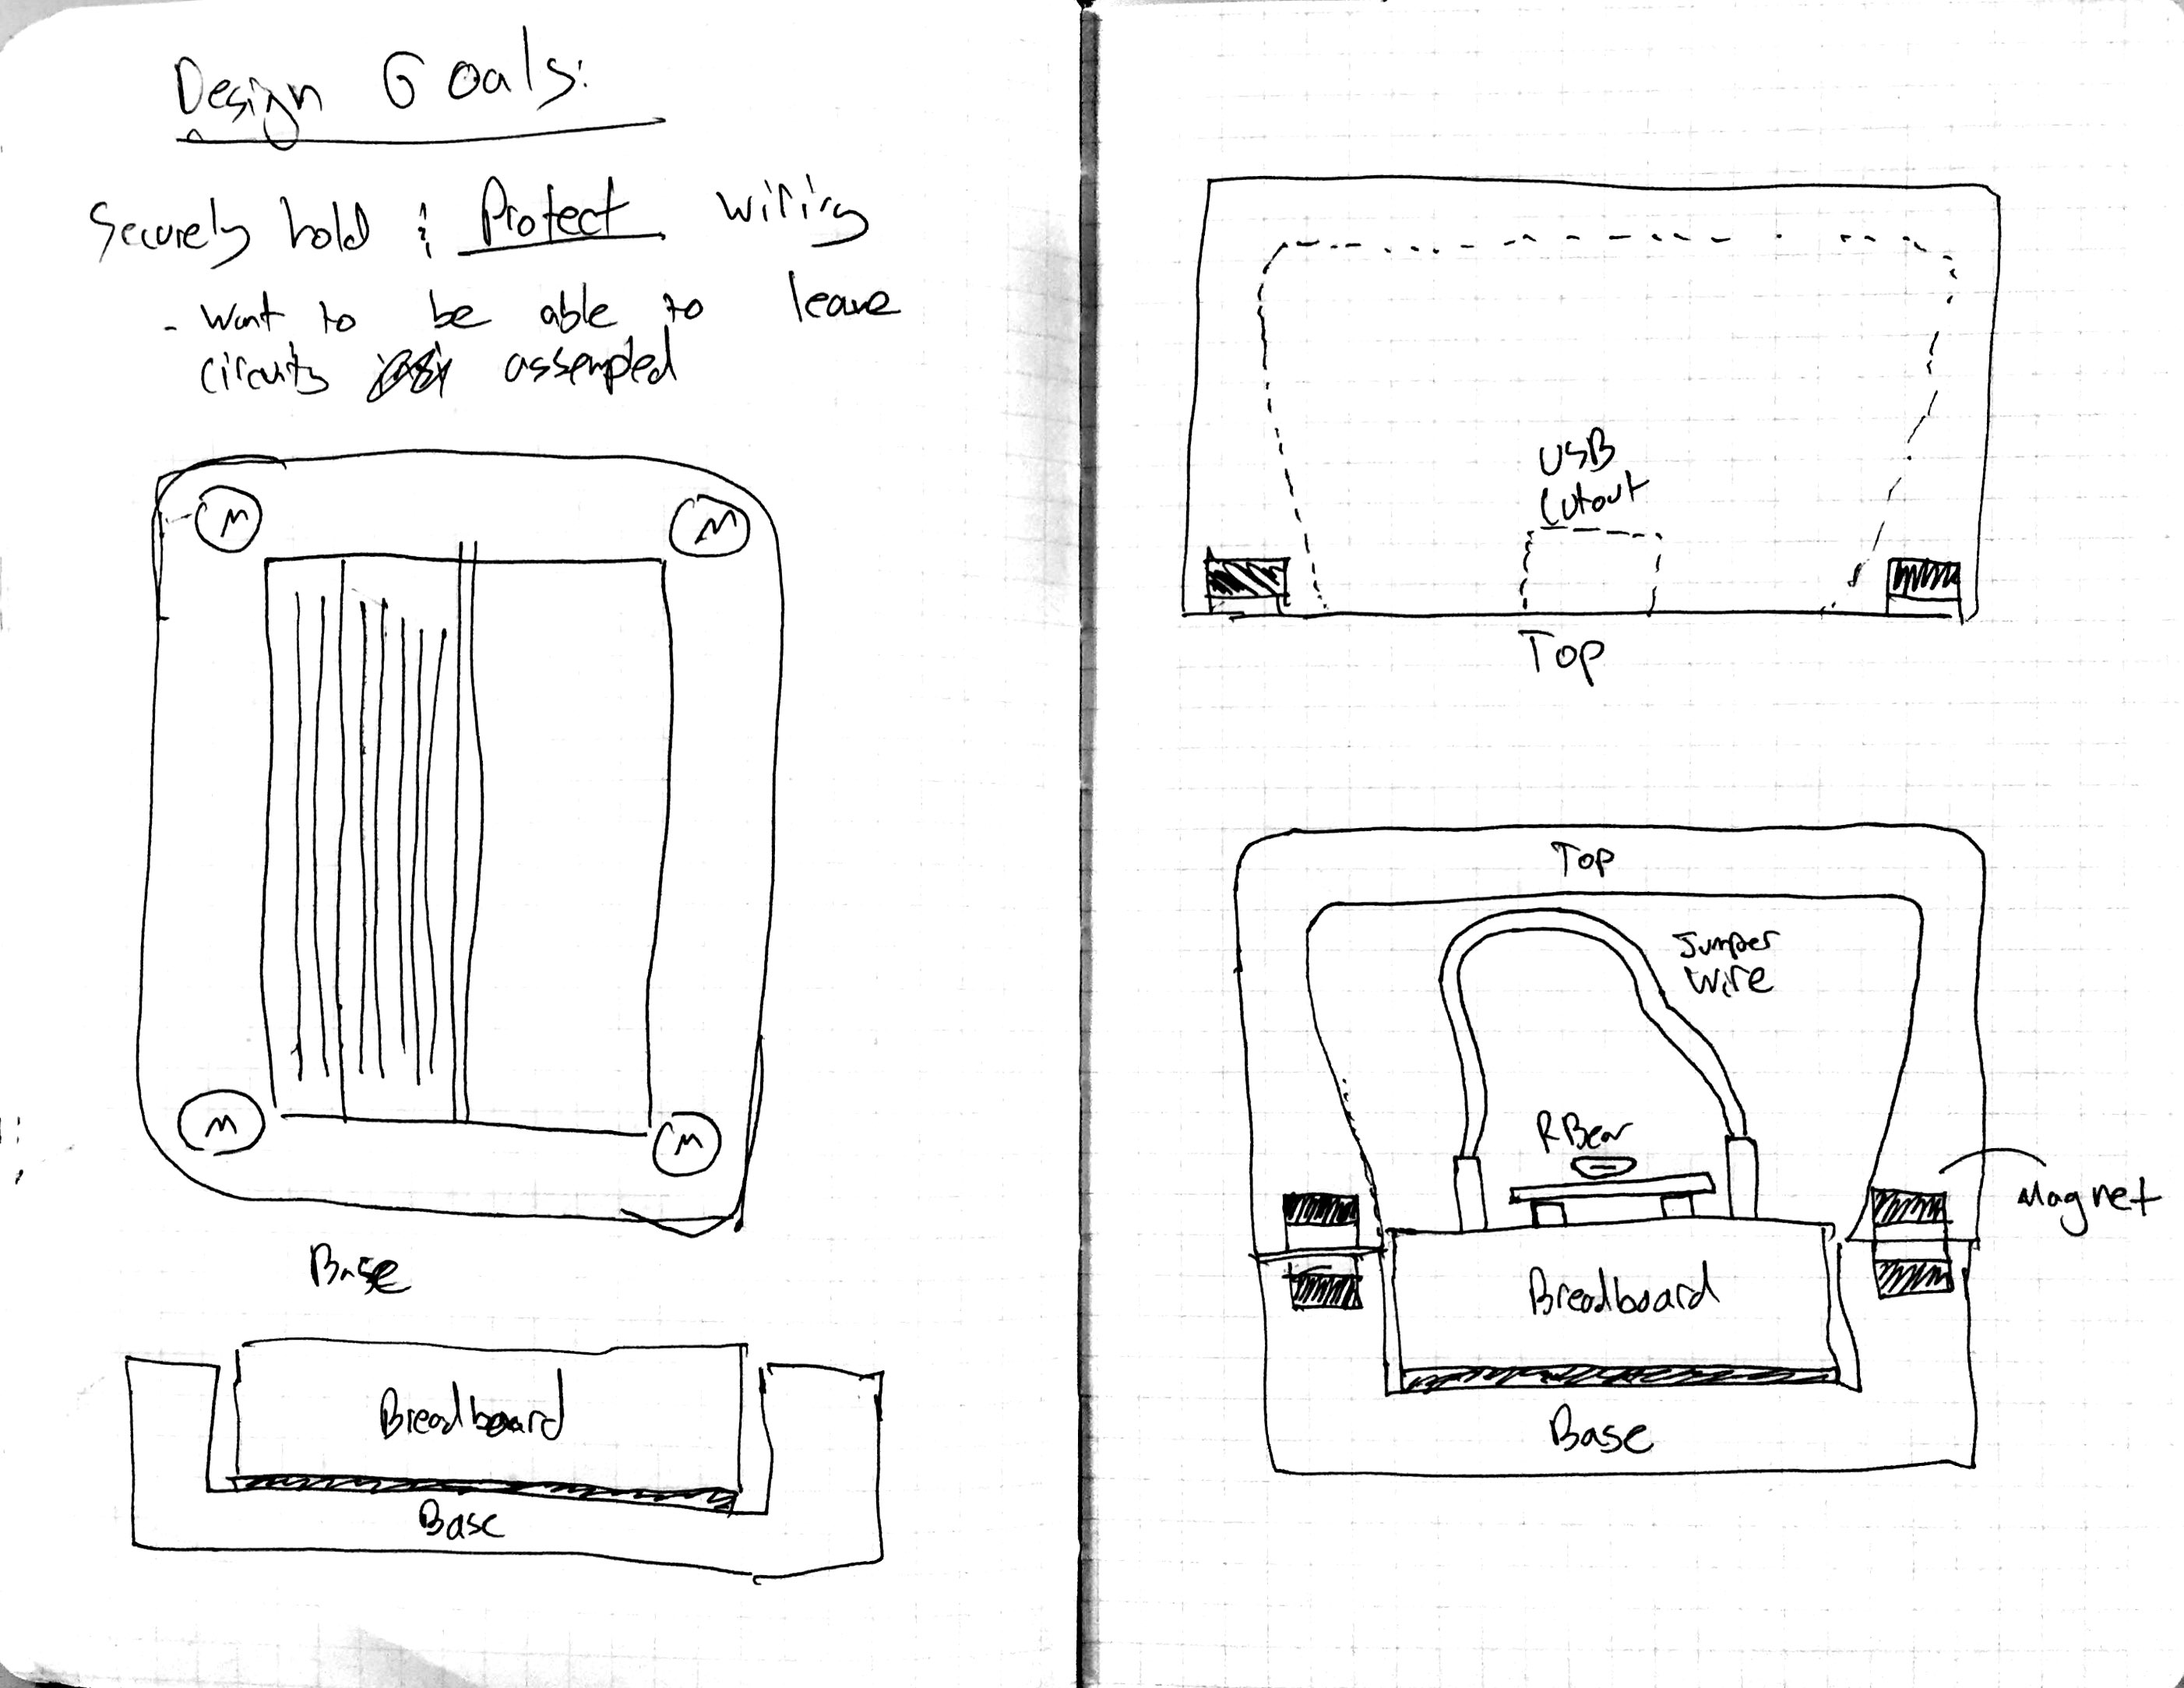 Design Goals:
Securely hold & Protect wiring
- Want to be able to leave
circuits assempled
M
M
M
M
Base
Breadboard
Base
USB
Cutout
Top
Top
Jumper
Wire
RBear
Magnet
Breadboard
Base